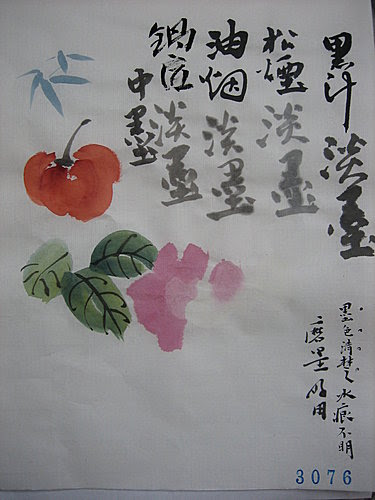 墨汁淡墨
松煙淡墨
油烟淡墨
淡墨
中墨
墨色清楚水痕不明
磨墨
用
3076